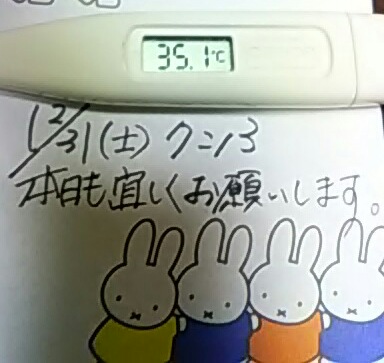 35.1°C
12/31(土) クンろ
本日も宜しくお願いします。